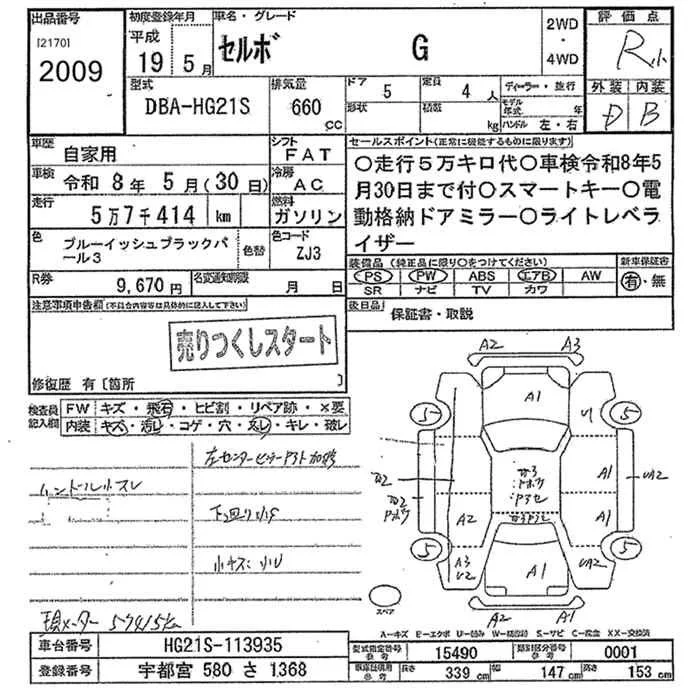 出品番号 初度登録年月 車名・グレード 2WD ・ 4WD 評価点
[2170]
2009
平成 19 5月
セルボ G
R小
型式 DBA-HG21S
排気量 660 cc
ドア 5 定員 4 人
形状 積数 kg
ディーラー・並行
モデル年式 年
ハンドル 左・右
外装 内装
D B
車歴 自家用
シフト FAT
車検 令和 8年 5月(30日)
冷房 AC
走行 5万7千414 km
燃料 ガソリン
色 ブルーイッシュブラックパール3
色替
色コード ZJ3
R券 9,670円
名変通知期限 月 日
セールスポイント(正常に機能するものに限ります)
○走行5万キロ代○車検令和8年5
月30日まで付○スマートキー○電
動格納ドアミラー○ライトレベラ
イザー
装備品 (純正品に限り○をつけてください)
PS PW ABS エアB AW
SR ナビ TV カワ
新車保証書
有・無
後日品
保証書・取説
注意事項申告欄(不具合内容等は具体的に記入して下さい)
売りつくしスタート
修復歴 有〔箇所 〕
検査員記入欄
FW キズ・飛石・ヒビ割・リペア跡・×要
内装 キズ・汚レ・コゲ・穴・スレ・キレ・破レ
左センターピラーアウト加修
ハンドルスレ
下回り小サ
小キズ小U
現メーター 57415km
A2 A3
A1
5 5
A1
UA2
A2
A1
A3
U2
UA2
5 5
A1
A2 A1
スペア
A-キズ E-エクボ U-凹み W-補修跡 S-サビ C-腐食 XX-交換済
車台番号 HG21S-113935
登録番号 宇都宮 580 さ 1368
型式指定番号 参考 15490
類別区分番号 参考 0001
車庫証明用 参考 長さ 339 cm 幅 147 cm 高さ 153 cm